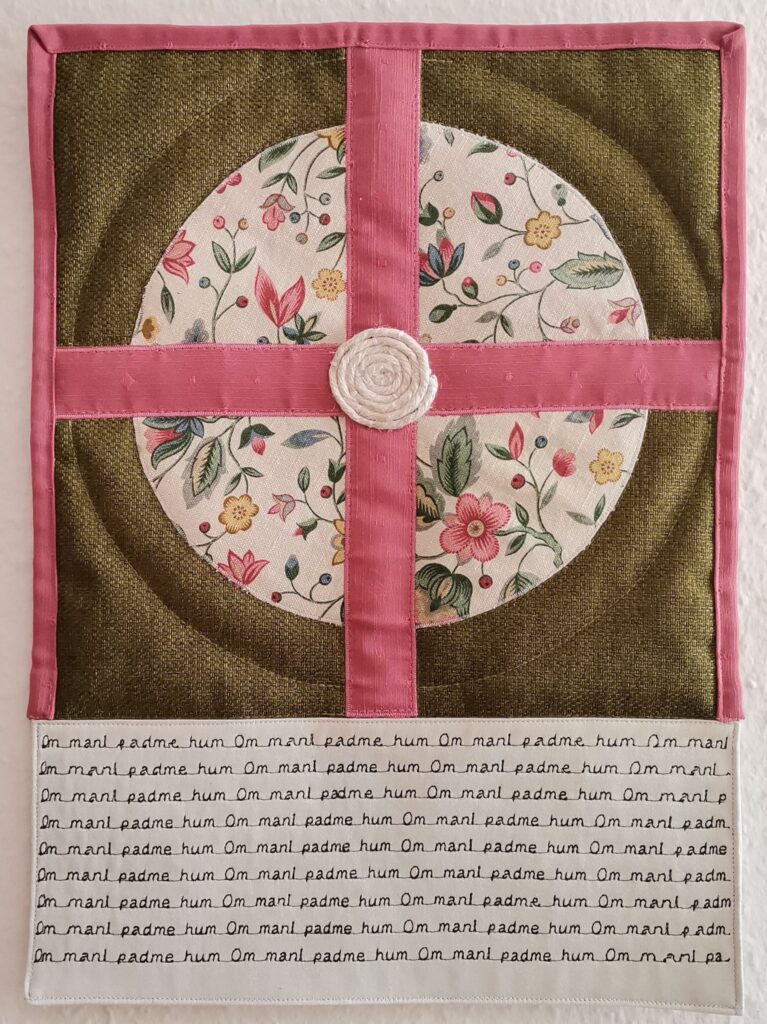 Om mani padme hum Om mani padme hum Om mani padme hum Om mani
Om mani padme hum Om mani padme hum Om mani padme hum Om mani
Om mani padme hum Om mani padme hum Om mani padme hum Om mani p
Om mani padme hum Om mani padme hum Om mani padme hum Om mani padm
Om mani padme hum Om mani padme hum Om mani padme hum Om mani padme
Om mani padme hum Om mani padme hum Om mani padme hum Om mani padm
Om mani padme hum Om mani padme hum Om mani padme hum Om mani padm
Om mani padme hum Om mani padme hum Om mani padme hum Om mani padm
Om mani padme hum Om mani padme hum Om mani padme hum Om mani pa